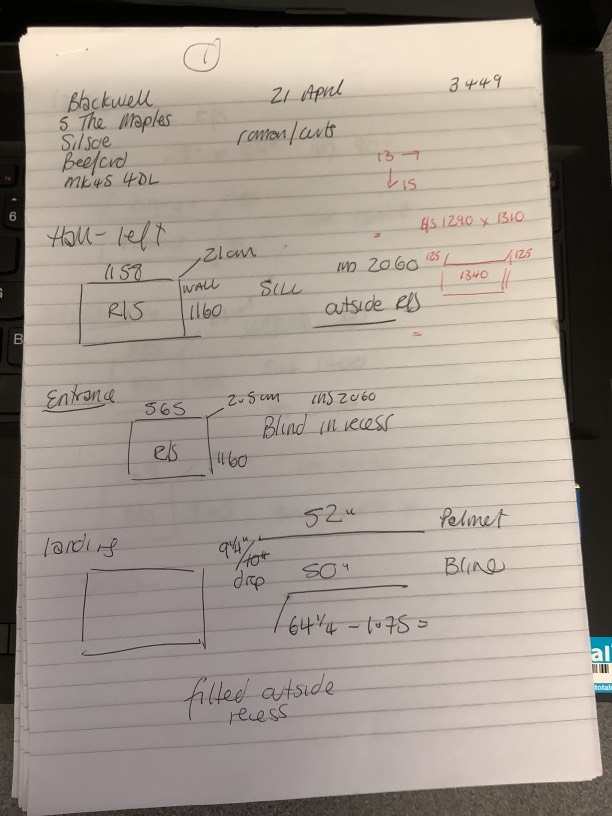 1
Blackwell 21 April 3449
5 The Maples
Silsoe roman/curts
Beeford
MK45 4DL
13 →
↓ 15
= R/S 1290 x 1310
Hall - left
1158 21cm ins 2060 125 125
WALL SILL 1340
R/S 1160 outside R/S
=
Entrance
565 2.5cm ins 2060
Blind in recess
R/S 1160
52" Pelmet
landing 9 1/4" / 10"
drop 50" Bline
64 1/4 - 1.75 =
fitted outside
recess
6
B
al
total